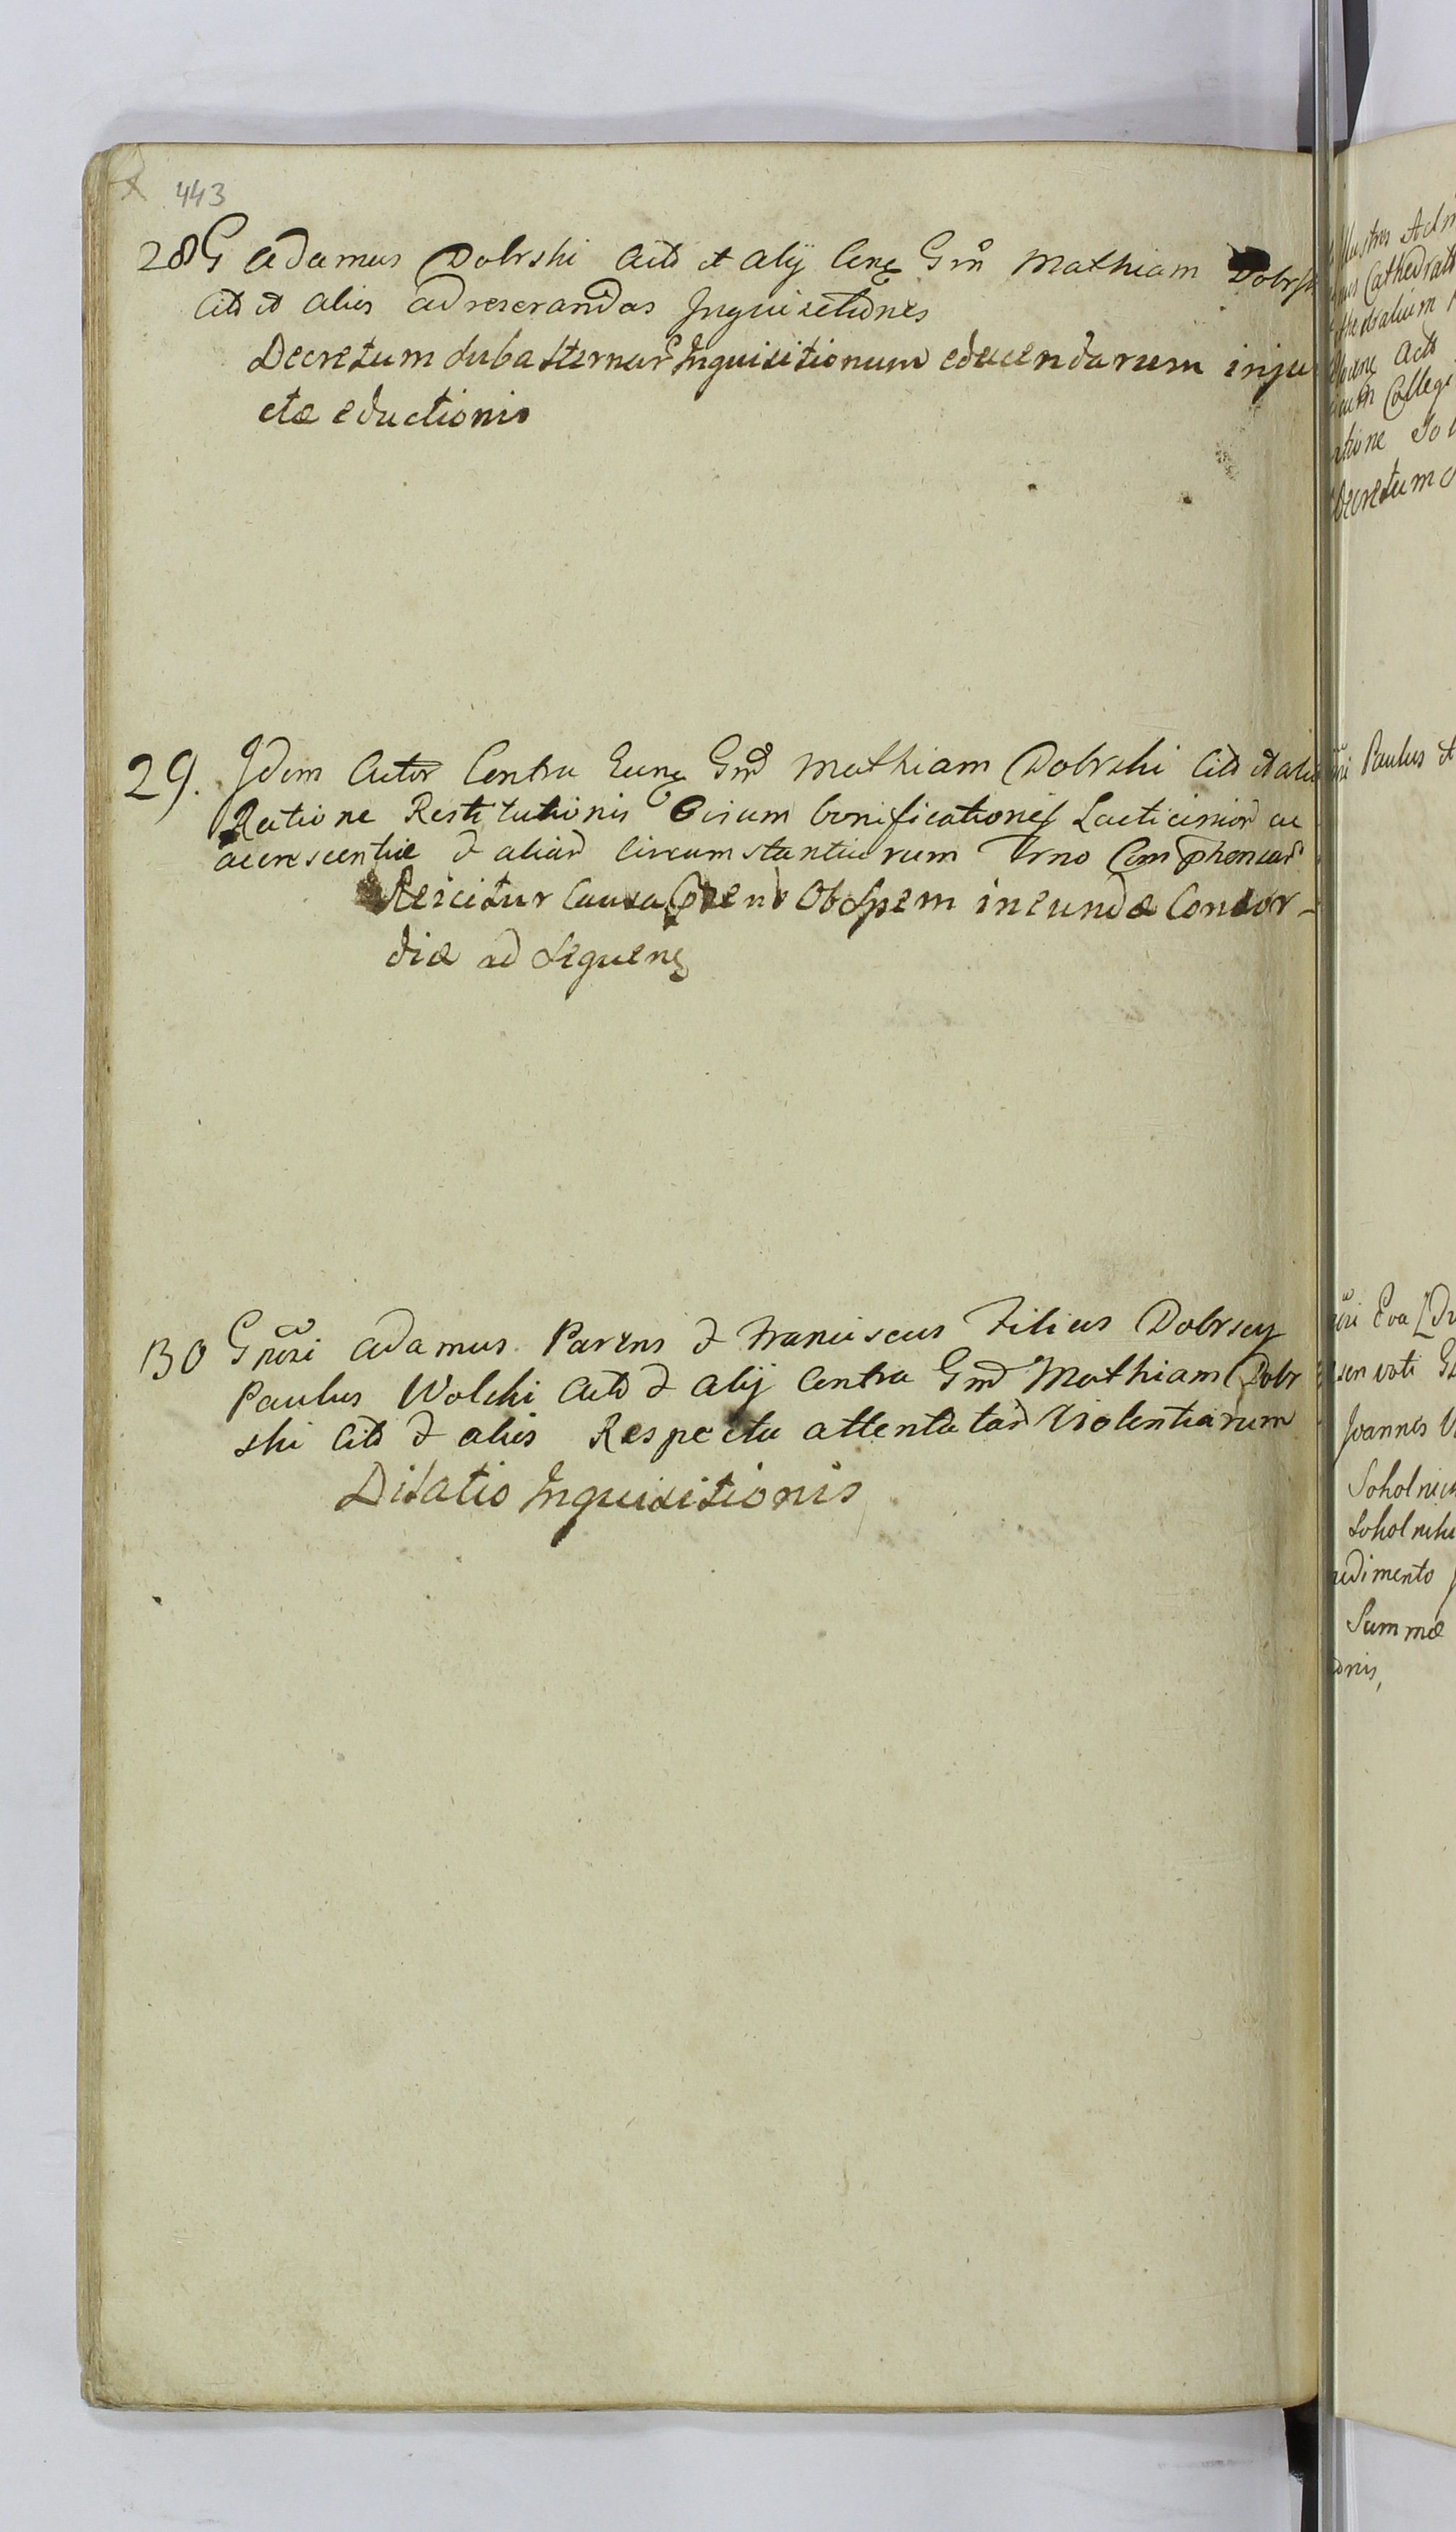 443
28 G Adamus Dobrski Acto et alij Conq Gm Mathiam Dobrsk
Cito et alios ad reserandas Inquisitiones
Decretum subalternar Inquisitionum educendarum inju
ctæ eductionis
29. Idem Actor Contra Eunq Gm Mathiam Dobrski Cito et alios
Ratione Restitutionis Ovium bonificationis Lacticinior ac
accrescentiæ et aliar Circumstantiarum Trno Comphensar
Reicitur Causa Præns Ob Spem ineundæ Concor-
diæ ad Sequenq
130 Gnosi Adamus Parens et Franciscus Filius Dobrscy
Paulus Wolski Acto et alij Contra Gm Mathiam Dobr
ski Cito et alios Respectu attentatar Violentiarum
Dilatio Inquisitionis
Illustris Adm
Cathedrali
thedralium
Acto
Colleg
Decretum
Paulus et
Eva
voti
Joannes
Sokolnic
Sokolnik
edimento
Summæ
onis,